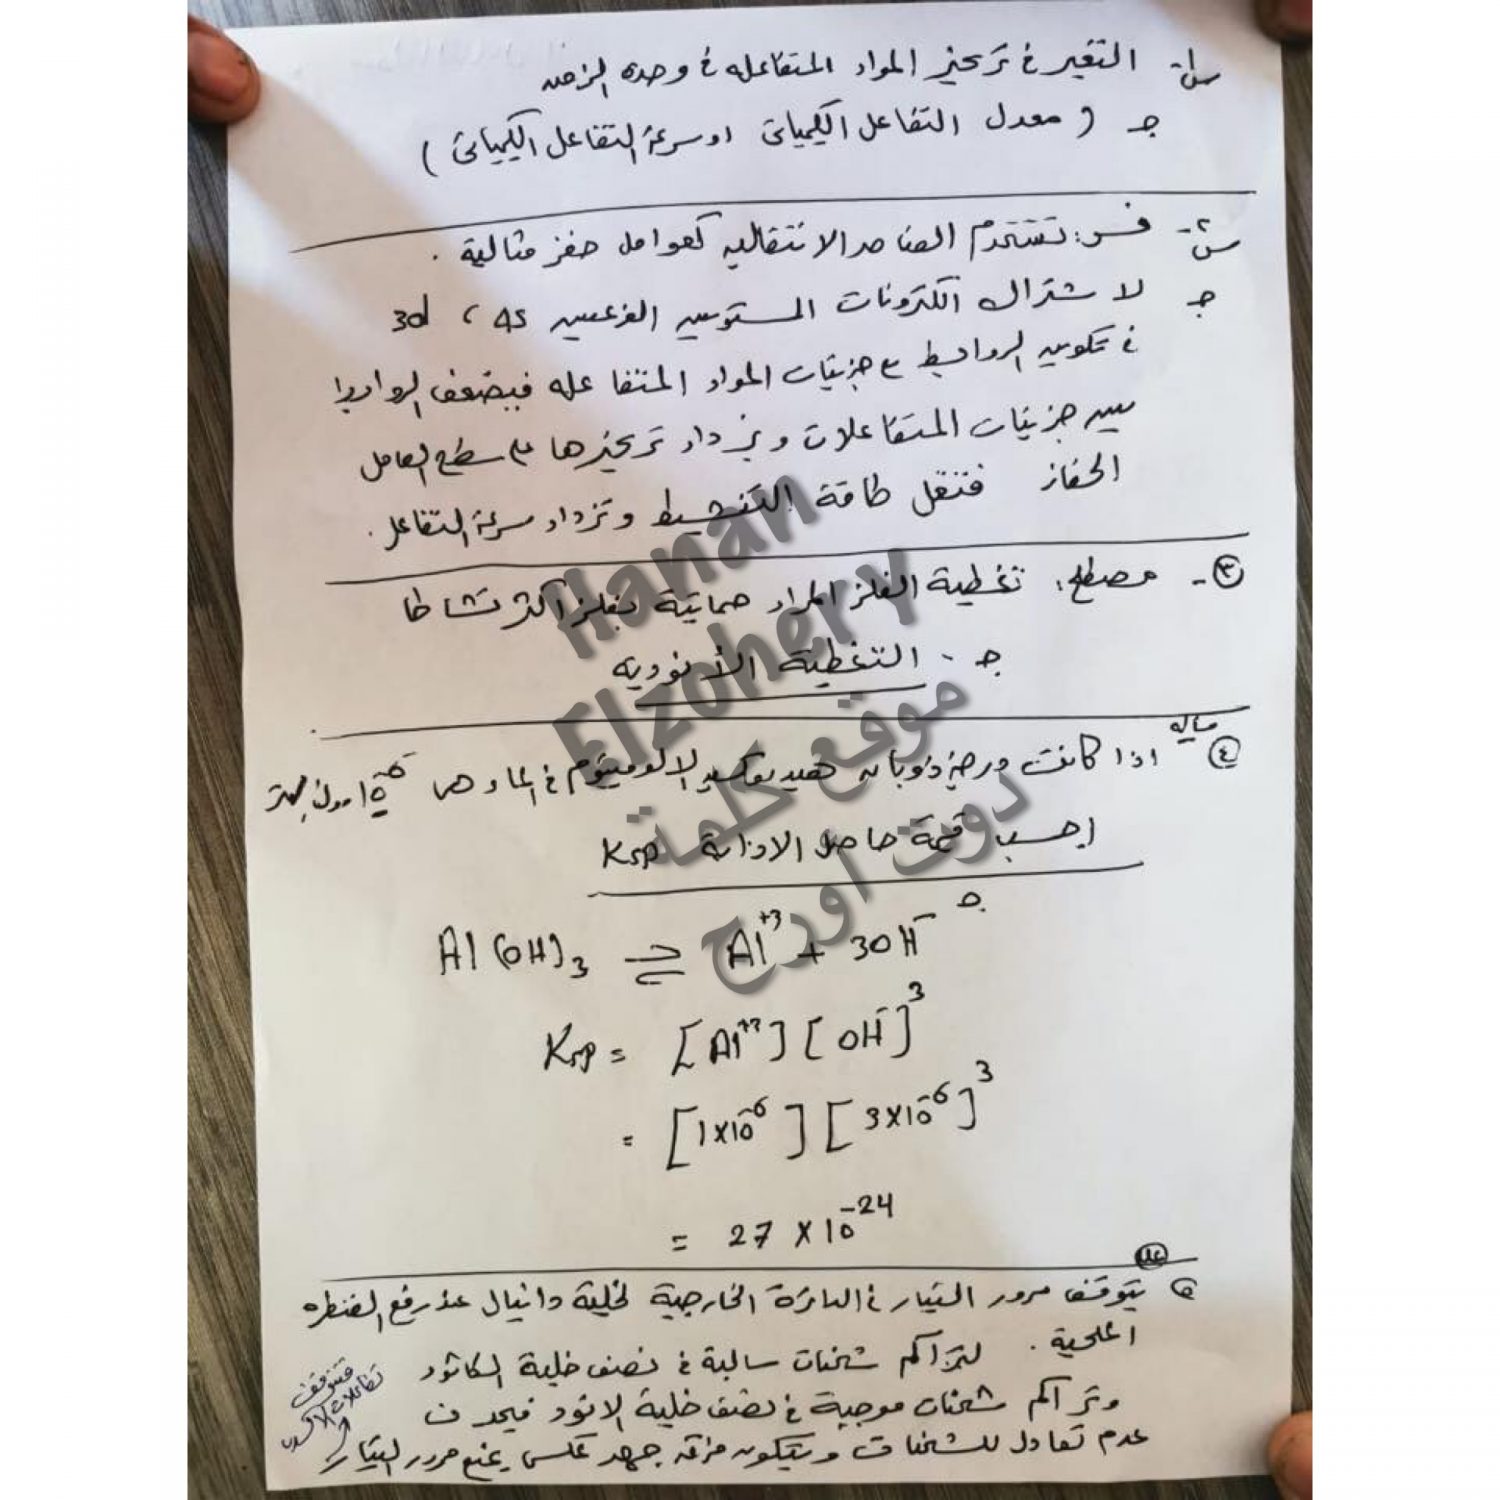 س١- التغير فى تركيز المواد المتفاعله فى وحده الزمن
جـ ( معدل التفاعل الكيميائى او سرعة التفاعل الكيميائى )
س٢- فسر: تستخدم العناصر الانتقاليه كعوامل حفز مثالية .
جـ لاشتراك الكترونات المستويين الفرعيين 4s ، 3d
فى تكوين الروابط مع جزيئات المواد المتفاعله فيضعف الروابط
بين جزيئات المتفاعلات ويزداد تركيزها على سطح العامل
الحفاز فتقل طاقة التنشيط وتزداد سرعة التفاعل .
٣- مصطلح: تغطية الفلز المراد حمايتة بفلز اكثر نشاطا
جـ - التغطية الأنوديه
Hanan
Elzohery
موقع كلمة
دوت أورج
٤ مسأله اذا كانت درجة ذوبانيه هيدروكسيد الالومنيوم فى الماء هى 10⁻⁶ مول/لتر
احسب قيمة حاصل الاذابة Ksp
جـ
Al(OH)₃ ⇌ Al⁺³ + 3OH⁻
Ksp = [Al⁺³] [OH⁻]³
= [1×10⁻⁶] [3×10⁻⁶]³
= 27 × 10⁻²⁴
٥ علل يتوقف مرور التيار فى الدائرة الخارجية لخلية دانيال عند رفع القنطره
الملحية . لتراكم شحنات سالبة فى نصف خلية الكاثود
وتراكم شحنات موجبة فى نصف خلية الانود فيحدث
عدم تعادل للشحنات ويتكون فرق جهد عكسى يمنع مرور التيار
فتتوقف
تفاعلات